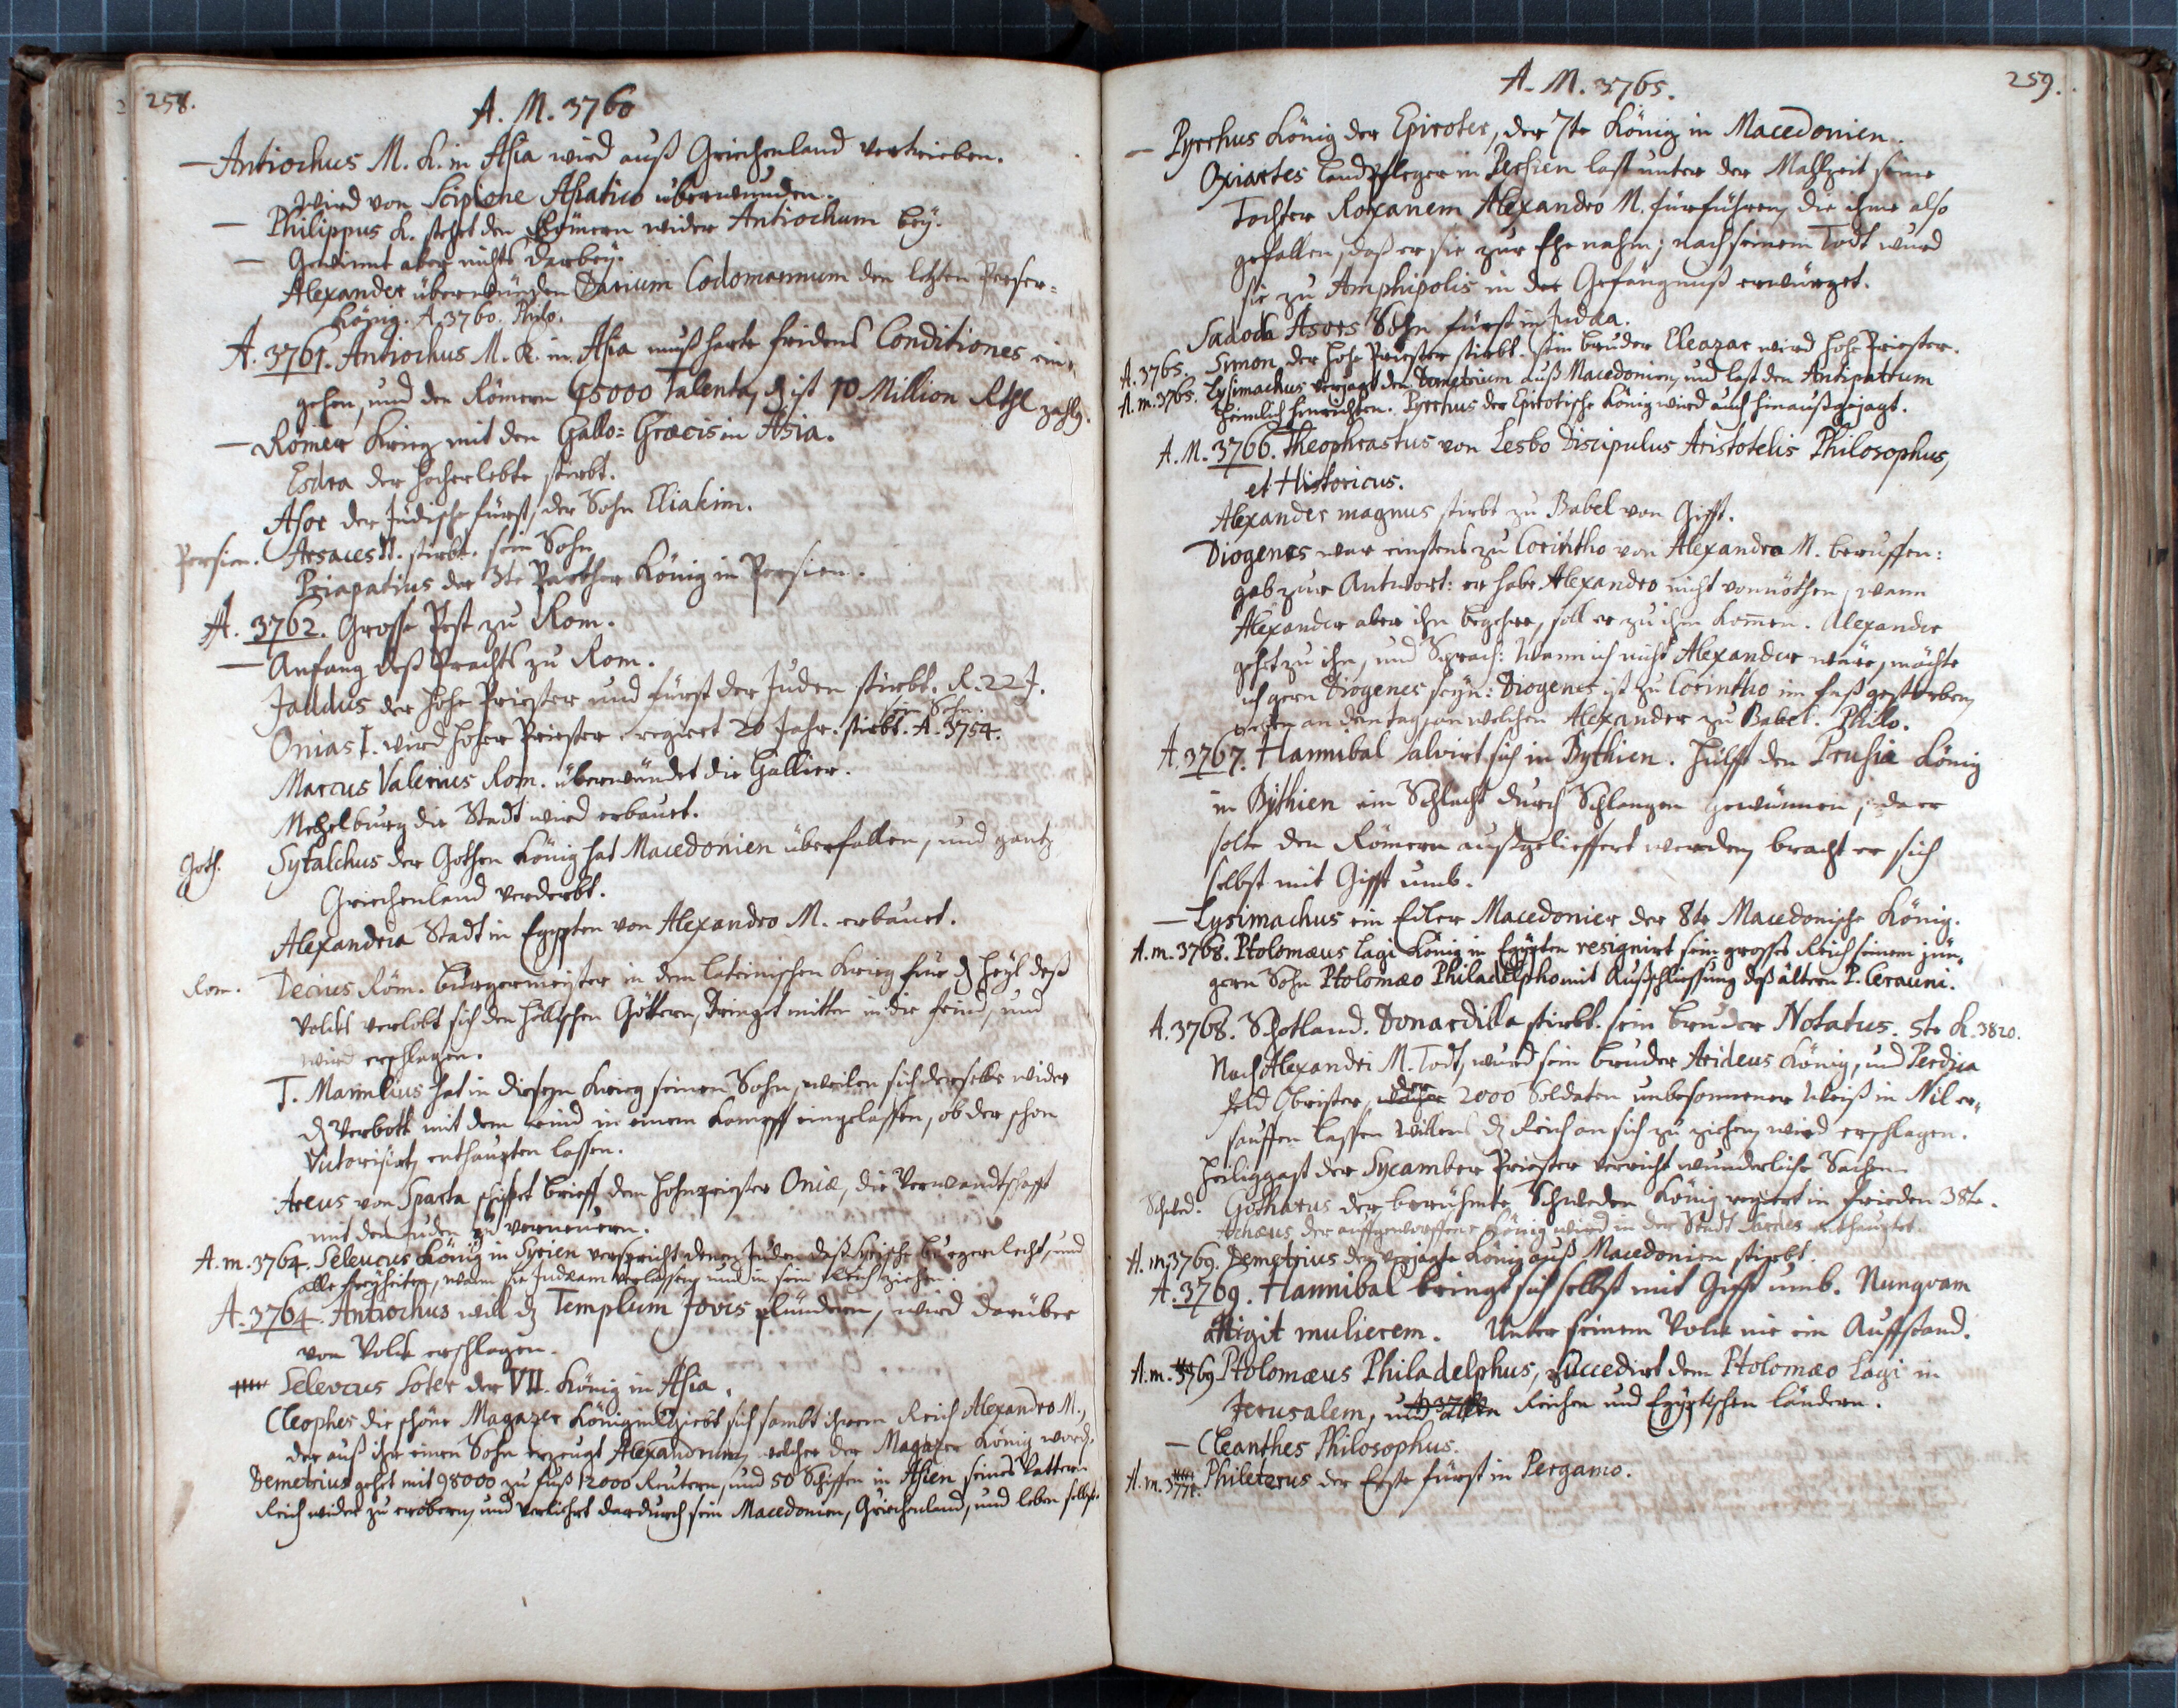 258.
A. M. 3760
— Antiochus M. K. in Asia wird auß Griechenland vertrieben.
wird von Scipione Asiatico überwunden.
— Philippus K. stehet den Römern wider Antiochum bey.
— Gewinnt aber nichts darbey.
Alexander überwunden Darium Codomannum den letzten Perser=
König. A. 3760. Philo.
A. 3761. Antiochus M. K. in Asia muß harte fridens Conditiones ein,
gehen, und den Römern 15000 Talenta, dz ist 10 Million Rthl zahlen.
— Römer Krieg mit den Gallo=Græcis in Asia.
Esdra der hocherlebte stirbt.
Asor der Jüdische fürst, der Sohn Eliakim.
Persien. Arsaces II. stirbt. sein Sohn
Priapatius der 3te Parther König in Persien.
A. 3762. Grosse Pest zu Rom.
— Anfang deß Prachts zu Rom.
Jaddus der hohe Priester und fürst der Juden stirbt. R. 22 J.
sein Sohn.
Onias I. wird hoher Priester regiert 20 Jahr. stirbt. A. 3754.
Marcus Valerius Rom. überwündet die Gallier.
Mechelburg die Stadt wird erbauet.
Goth. Sytalchus der Gothen König hat Macedonien überfallen, und gantz
Griechenland verderbt.
Alexandria Stadt in Egypten von Alexandro M. erbauet.
Rom. Decius Röm. burgermeister in dem lateinischen Krieg für dz heyl deß
Volcks verlobt sich den höllischen Göttern, dringet mitten in die feind, und
wird erschlagen.
T. Mannlius hat in diesem Krieg seinen Sohn, weilen sich derselbe wider
dz Verbott mit dem feind in einem Kampff eingelassen, ob der schon
Victorisirt, enthaupten lassen.
Areus von Sparta schicket brieff dem hohenpriester Oniæ, die Verwandtschafft
mit den Juden zu verneuern.
A. m. 3764. Seleucus König in Syrien verspricht denen Juden daß Syrische burgerrecht, und
alle freyheiten, wann sie Judæam verlassen, und in sein Reich ziehen.
A. 3764. Antiochus will dz Templum Jovis plündern, wird darüber
von Volck erschlagen.
Seleucus Soter der VII. König in Asia.
Cleophes die schöne Magazer Königin ergiebt sich sambt ihrem Reich Alexandro M.,
der auß ihr einen Sohn erzeugt Alexandrum, welcher der Magazer König word.
Demetrius gehet mit 98000 zu fuß 12000 Reutern, und 50 Schiffen in Asien seines Vattern
Reich wider zu erobern, und verliehrt dardurch sein Macedonien, Griechenland, und leben selbst.
259.
A. M. 3765.
— Pyrrhus König der Epiroter, der 7te König in Macedonien.
Oxiartes Landpfleger in Persien last unter der Mahlzeit seine
Tochter Roxanem Alexandro M. fürführen, die ihme also
gefallen, daß er sie zur Ehe nahm; nach seinem Todt wurd
sie zu Amphipolis in der Gefängnuß erwürget.
Sadoch Asors Sohn fürst in Judæa.
A. 3765. Simon der hohe Priester stirbt. sein bruder Eleazar wird hohe Priester.
A. m. 3765. Lysimachus verjagt den Demetrium auß Macedonien, und last den Antipatrum
heimlich hinrichten. Pyrrhus der Epirotische König wird auch hinaußgejagt.
A. M. 3766. Theophrastus von Lesbo Discipulus Aristotelis Philosophus,
et Historicus.
Alexander magnus stirbt zu Babel von Gifft.
Diogenes war einstens zu Corintho von Alexandro M. beruffen:
gab zur Antwort: er habe Alexandro nicht vonnöthen, wann
Alexander aber ihn begehre, soll er zu ihm kommen. Alexander
gehet zu ihm, und Sprach: Wann ich nicht Alexander wäre, möchte
ich gern Diogenes seyn: Diogenes ist zu Corintho im faß gestorben,
an dem Tag, an welchen Alexander zu Babel. Philo.
A. 3767. Hannibal salvirt sich in Bythien. hülfft den Prusia König
in Bythien ein Schlacht durch Schlangen gewünnen, da er
solte den Römern außgelieffert werden, bracht er sich
selbst mit Gifft umb.
— Lysimachus ein Edler Macedonier der 8te Macedonische König.
A. m. 3768. Ptolomæus Lagi König in Egypten resignirt sein grosses Reich seinem jün,
gern Sohn Ptolomæo Philadelpho mit Außschliessung deß ältern P. Cerauni.
A. 3768. Schotland. Donardilla stirbt. sein bruder Notatus. 5te K. 3820.
Nach Alexandri M. Todt, wurd sein bruder Arideus König, und Perdica
feld Obrister, der 2000 Soldaten unbesonnener Weiß in Nil er,
sauffen lassen Willens dz Reich an sich zu ziehen, wird erschlagen.
Heiliggast der Sycamber Priester verricht wunderliche Sachen.
Schwed. Gotharus der berühmte Schweden König regiert in frieden 38te.
Achæus der auffgeworffene König wird in der Stadt Sardes enthauptet.
A. m. 3769. Demetrius der verjagte König auß Macedonien stirbt.
A. 3769. Hannibal bringt sich selbst mit Gifft umb. Nunqvam
attigit mulierem. Unter seinem Volck nie ein Auffstand.
A. m. 3769 Ptolomæus Philadelphus, succedirt dem Ptolomæo Lagi in
Jerusalem, und allen Reichen und Egyptischen ländern.
— Cleanthes Philosophus.
A. m. 3771. Phileterus der Erste fürst in Pergamo.